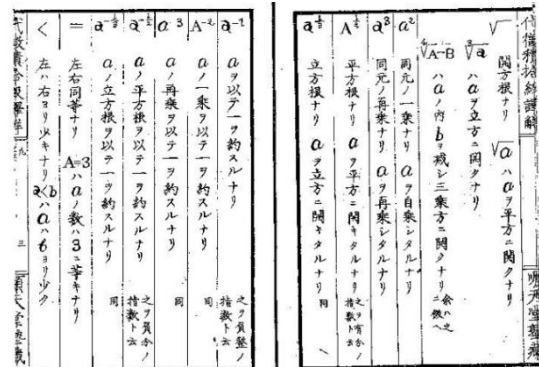 代微積拾級譯解
√ 開方根ナリ √a ハ a ヲ平方ニ開クナリ
∛a ハ a ヲ立方ニ開クナリ
∜A-B ハ a ノ内 b ヲ残シ三乗方ニ開クナリ 余ハ之ニ倣ヘ
a² 同元ノ一乗ナリ a ヲ自乗シタルナリ
a³ 同元ノ再乗ナリ a ヲ再乗シタルナリ
A^½ 平方根ナリ a ヲ平方ニ開キタルナリ 之ヲ有分ノ指數ト云
a^⅓ 立方根ナリ a ヲ立方ニ開キタルナリ 同
a⁻¹ a ヲ以テ一ヲ約スルナリ 之ヲ負整ノ指數ト云
A⁻² a ノ一乗ヲ以テ一ヲ約スルナリ 同
a⁻³ a ノ再乗ヲ以テ一ヲ約スルナリ 同
a^-½ a ノ平方根ヲ以テ一ヲ約スルナリ 之ヲ負分ノ指數ト云
a^-⅓ a ノ立方根ヲ以テ一ヲ約スルナリ 同
= 左右同等ナリ A=3 ハ a ノ數ハ 3 ニ等キナリ
< 左ハ右ヨリ少キナリ a<b ハ a ハ b ヨリ少ク
三